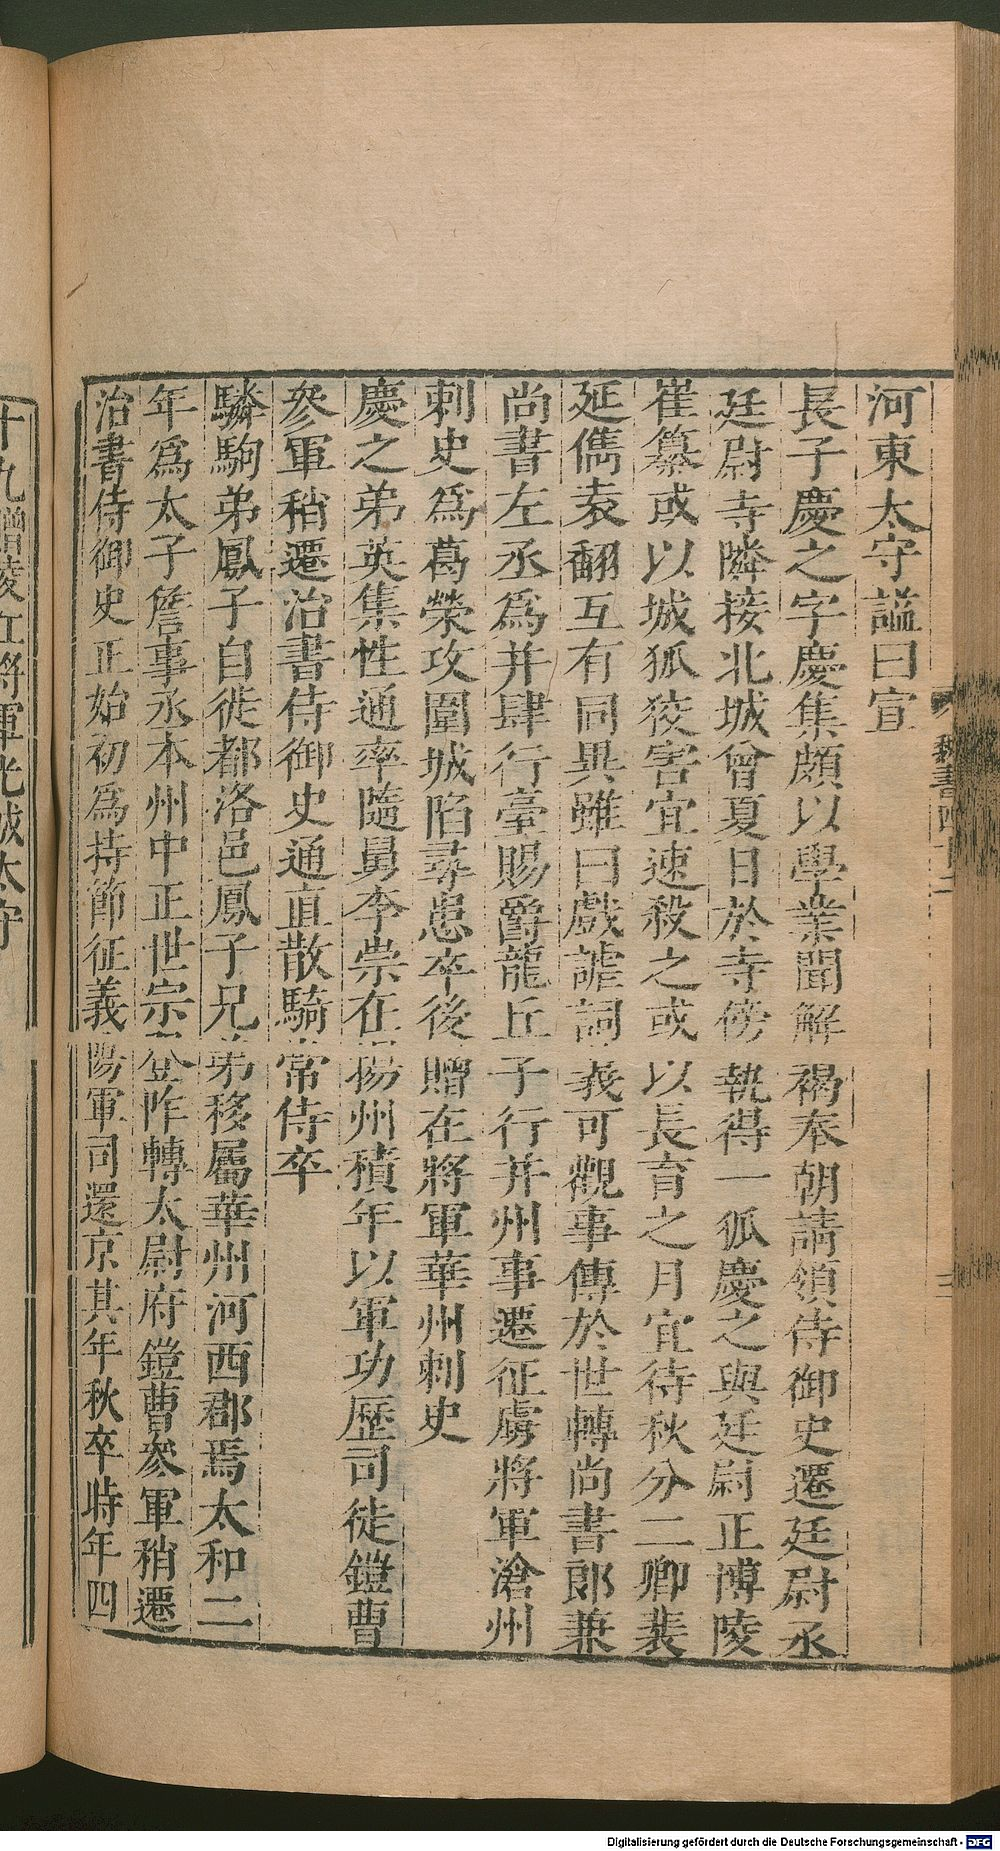 河東太守諡曰宣
長子慶之字慶集頗以學業聞解褐奉朝請領侍御史遷廷尉丞
廷尉寺隣接北城曾夏日於寺傍執得一狐慶之與廷尉正博陵
崔纂或以城狐狡害宜速殺之或以長育之月宜待秋分二卿裴
延儁袁翻互有同異雖曰戲謔詞義可觀事傳於世轉尚書郎兼
尚書左丞爲并肆行臺賜爵龍丘子行并州事遷征虜將軍滄州
刺史爲葛榮攻圍城陷尋患卒後贈左將軍華州刺史
慶之弟英集性通率隨舅李崇在揚州積年以軍功歷司徒鎧曹
參軍稍遷治書侍御史通直散騎常侍卒
驎駒弟鳳子自徙都洛邑鳳子兄弟移屬華州河西郡焉太和二
年爲太子詹事丞本州中正世宗登阼轉太尉府鎧曹參軍稍遷
治書侍御史正始初爲持節征義陽軍司還京其年秋卒時年四
十九贈陵江將軍光城太守
魏書四十二
三
Digitalisierung gefördert durch die Deutsche Forschungsgemeinschaft - DFG